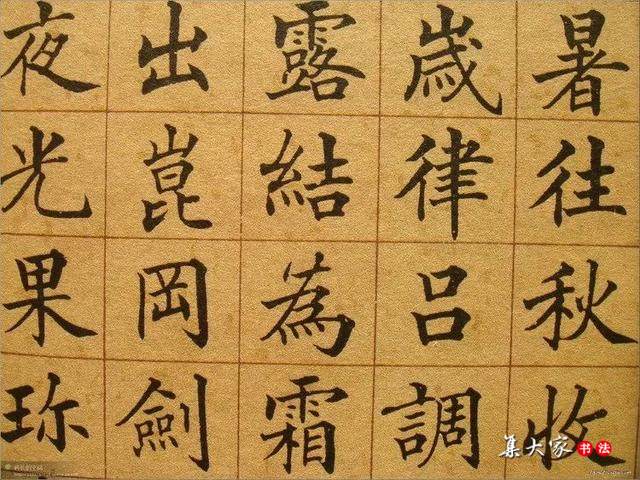 暑往秋收
歲律呂調
露結為霜
出崑岡劍
夜光果珍
集大家书法